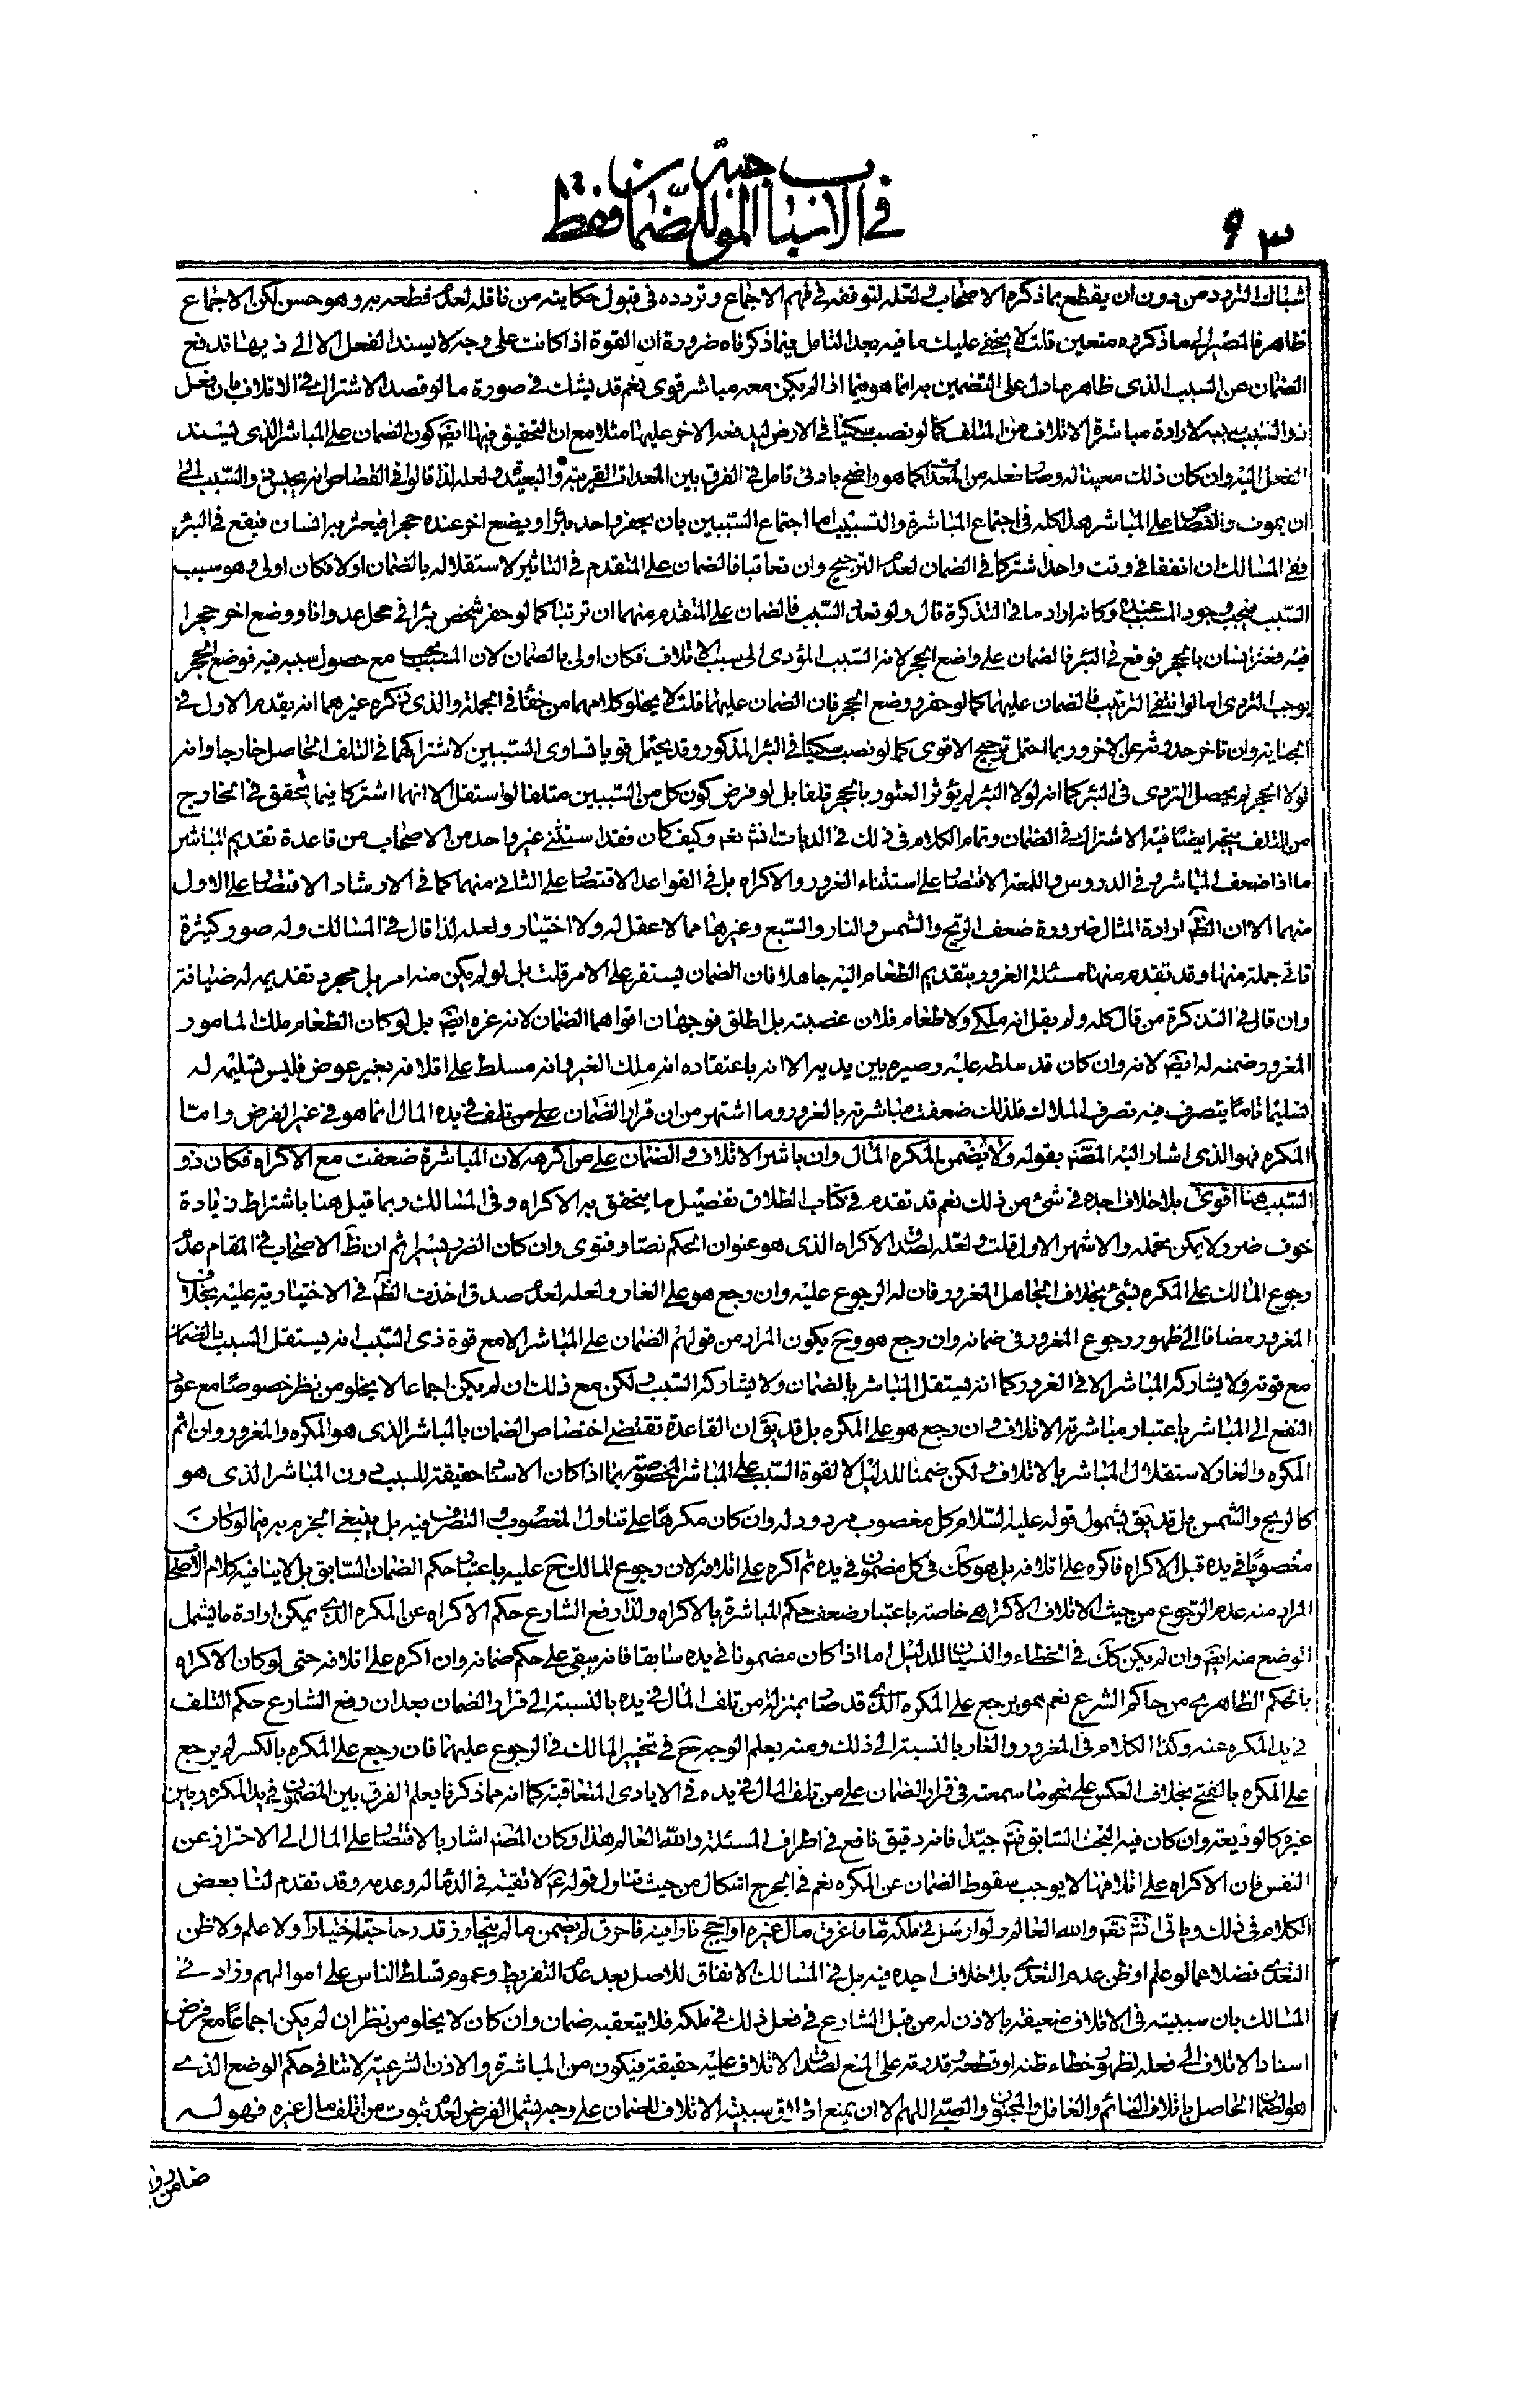 في الاسباب الموجبة للضمان فقط
شباك التردد من دون ان يقطع بما ذكره الاصحاب ولعله لتوقفه في فهم الاجماع وتردده في قبول حكايته من ناقله لعدم قطعه به وهو حسن لكن الاجماع
ظاهر فالمصير الى ما ذكروه متعين قلت لا يخفى عليك ما فيه بعد التامل فيما ذكرناه ضرورة ان القوة اذا كانت على وجه لا يسند الفعل الا الى ذيها قد فع
الضمان عن السبب الذى ظاهر ما دل على التضمين به انما هو فيما اذا لم يكن معه مباشر قوى نعم قد يشك في صورة ما لو قصد الاشتراك في الاتلاف بان فعل
ذو السبب سببه لارادة مباشرة الاتلاف من المتلف كما لو نصب سكينا في الارض ليدفعه الاخر عليها مثلا مع ان التحقيق فيها ايضا كون الضمان على المباشر الذى يسند
الفعل اليه وان كان ذلك معينا له وصار فعله من المعدات كما هو واضح بادنى تامل في الفرق بين المعدات القريبة والبعيدة ولعله لذا قالوا في القصاص انه يحبس ذو السبب الى
ان يموت والقصاص على المباشر هذا كله في اجتماع المباشرة والتسبيب اما اجتماع السببين بان يحفر واحد بئرا ويضع اخر عنده حجرا فيعثر به انسان فيقع في البئر
ففى المسالك ان اتفقا في وقت واحد اشتركا في الضمان لعدم الترجيح وان تعاقبا فالضمان على المتقدم في التاثير لاستقلاله بالضمان اولا فكان اولى وهو سبب
السبب فيجب وجود المسبب عنده وكانه اراد ما في التذكرة قال ولو تعدد السبب فالضمان على المتقدم منهما ان ترتبا كما لو حفر شخص بئرا في محل عدوانا ووضع اخر حجرا
فيه فعثر انسان بالحجر فوقع في البئر فالضمان على واضع الحجر لانه السبب المؤدى الى سبب الاتلاف فكان اولى بالضمان لان المسبب يجب مع حصول سببه فيه فوضع الحجر
يوجب التردى اما لو انتفى الترتيب فالضمان عليهما كما لو حفر ووضع الحجر فان الضمان عليهما قلت لا يخلو كلامهما من خفاء في الجملة والذى ذكره غيرهما انه يقدم الاول في
الجناية وان تاخر حدوثه على الاخر وربما احتمل ترجيح الاقوى كما لو نصب سكينا في البئر المذكور وقد يحتمل قويا تساوى السببين لاشتراكهما في التلف الحاصل خارجا وانه
لولا الحجر لم يحصل التردى في البئر كما انه لولا البئر لم يؤثر العثور بالحجر تلفا بل لو فرض كون كل من السببين متلفا لو استقل الا انهما اشتركا فيما تحقق في الخارج
من التلف يتجه ايضا فيه الاشتراك في الضمان وتمام الكلام في ذلك في الديات انش تعم وكيف كان فقد استثنى غير واحد من الاصحاب من قاعدة تقديم المباشر
ما اذا ضعف المباشر وفي الدروس واللمعة الاقتصار على استثناء الغرور والاكراه بل في القواعد الاقتصار على الثاني منهما كما في الارشاد الاقتصار على الاول
منهما الا ان الظم ارادة المثال ضرورة ضعف الريح والشمس والنار والسبع وغيرها مما لا عقل له ولا اختيار ولعله لذا قال في المسالك وله صور كثيرة
تاتي جملة منها وقد تقدم منها مسئلة الغرور بتقديم الطعام اليه جاهلا فان الضمان يستقر على الامر قلت بل لو لم يكن منه امر بل مجرد تقديمه له ضيافة
وان قال في التذكرة من قال كله ولم يقل انه ملكي ولا طعام فلان غصبته بل اطلق فوجهان اقواهما الضمان لانه غره ايضا بل لو كان الطعام ملك المامور
المغرور ضمنه له ايضا لانه وان كان قد سلطه عليه وصيره بين يديه الا انه باعتقاده انه ملك الغير وانه مسلط على اتلافه بغير عوض فليس تسليمه له
تسليما تاما يتصرف فيه تصرف الملاك فلذلك ضعفت مباشرته بالغرور وما اشتهر من ان قرار الضمان على من تلف في يده المال انما هو في غير الفرض واما
المكره فهو الذى اشار اليه المصنف بقوله ولا يضمن المكره المال وان باشر الاتلاف والضمان على من اكرهه لان المباشرة ضعفت مع الاكراه فكان ذو
السبب هنا اقوى بلا خلاف اجده في شئ من ذلك نعم قد تقدم في كتاب الطلاق تفصيل ما يتحقق به الاكراه وفي المسالك وربما قيل هنا باشتراط زيادة
خوف ضرر لا يمكن تحمله والاشهر الاول قلت ولعله لصدق الاكراه الذى هو عنوان الحكم نصا وفتوى وان كان الضرر يسيرا ثم ان ظ الاصحاب في المقام عدم
رجوع المالك على المكره بشئ بخلاف الجاهل المغرور فان له الرجوع عليه وان رجع هو على الغار ولعله لعدم صدق اخذت الظم في الاختيارية عليه بخلاف
المغرور مضافا الى ظهور رجوع المغرور في ضمانه وان رجع هو وح يكون المراد من قولهم الضمان على المباشر الا مع قوة ذى السبب انه يستقل السبب بالضمان
مع قوته ولا يشاركه المباشر الا في الغرور كما انه يستقل المباشر بالضمان ولا يشاركه السبب ولكن مع ذلك ان لم يكن اجماعا لا يخلو من نظر خصوصا مع عود
النفع الى المباشر باعتبار مباشرته الاتلاف وان رجع هو على المكره بل قد يق ان القاعدة تقتضى اختصاص الضمان بالمباشر الذى هو المكره والمغرور وان اثم
المكره والغار لاستقلال المباشر بالاتلاف ولكن ضمنا للدليل لا لقوة السبب على المباشر المخصوصة بما اذا كان الاسناد حقيقة للسبب دون المباشر الذى هو
كالريح والشمس بل قد يق بشمول قوله عليه السلام كل مغصوب مردود له وان كان مكرها على تناول المغصوب والتصرف فيه بل ينبغى الجزم به فيما لو كان
مغصوبا في يده قبل الاكراه فاكره على اتلافه بل هو كك في كل مضمون في يده ثم اكره على اتلافه لان رجوع المالك ح عليه باعتبار حكم الضمان السابق بل لا ينافيه كلام الاصحاب
المراد منه عدم الرجوع من حيث الاتلاف الاكراهى خاصة باعتبار ضعف حكم المباشرة بالاكراه ولذا رفع الشارع حكم الاكراه عن المكره الذى يمكن ارادة ما يشمل
الوضع منه ايضا وان لم يكن كك في الخطاء والنسيان للدليل اما اذا كان مضمونا في يده سابقا فانه يبقى على حكم ضمانه وان اكره على اتلافه حتى لو كان الاكراه
بالحكم الظاهرى من حاكم الشرع نعم هو يرجع على المكره الذى قد صار بمنزلة من تلف المال في يده بالنسبة الى قرار الضمان بعد ان رفع الشارع حكم التلف
في يد المكره عنه وكذا الكلام في المغرور والغار بالنسبة الى ذلك ومنه يعلم الوجه ح في تخيير المالك في الرجوع عليهما فان رجع على المكره بالكسر لم يرجع
على المكره بالفتح بخلاف العكس على نحو ما سمعته في قرار الضمان على من تلف المال في يده في الايادى المتعاقبة كما انه مما ذكرنا يعلم الفرق بين المضمون في يد المكره وبين
غيره كالوديعة وان كان فيه البحث السابق فتم جيدا فانه دقيق نافع في اطراف المسئلة والله العالم هذا وكان المصنف اشار بالاقتصار على المال الى الاحتراز عن
النفس فان الاكراه على اتلافها لا يوجب سقوط الضمان عن المكره نعم في الجرح اشكال من حيث تناول قوله ع لا تقية في الدماء له وعدمه وقد تقدم لنا بعض
الكلام في ذلك وياتي انش تعم والله العالم ولو ارسل في ملكه ماء فاغرق مال غيره او اجج نارا فيه فاحرق لم يضمن ما لم يتجاوز قدر حاجته اختيارا ولا علم ولا ظن
التعدى فضلا عما لو علم او ظن عدم التعدى بلا خلاف اجده فيه بل في المسالك الاتفاق للاصل بعد عدم التفريط وعموم تسلط الناس على اموالهم وزاد في
المسالك بان سببيته في الاتلاف ضعيفة بالاذن له من قبل الشارع في فعل ذلك في ملكه فلا يتعقبه ضمان وان كان لا يخلو من نظر ان لم يكن اجماعا مع فرض
اسناد الاتلاف الى فعله لظهور خطاء ظنه او قطعه وقدرته على المنع لصدق الاتلاف عليه حقيقة فيكون من المباشرة والاذن الشرعية لا تنافي حكم الوضع الذى
هو الضمان الحاصل باتلاف النائم والغافل والمجنون والصبى اللهم الا ان يمنع اذا اق سببية الاتلاف للضمان على وجه يشمل الفرض لعدم ثبوت من اتلف مال غيره فهو له
ضامن وا